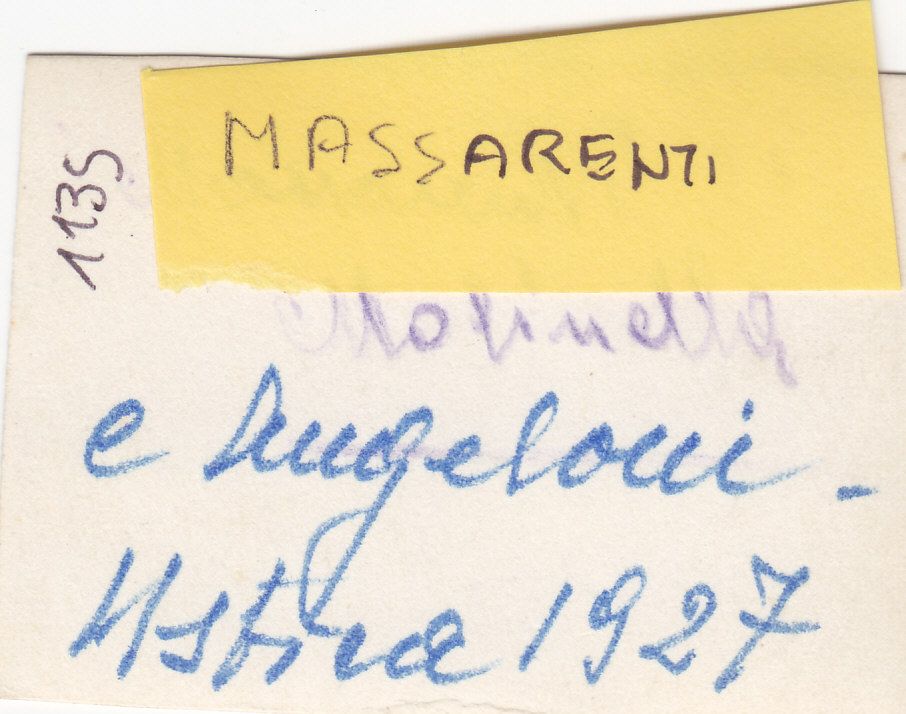 MASSARENTI
1135
Molinella
e Angeloni -
Ustica 1927